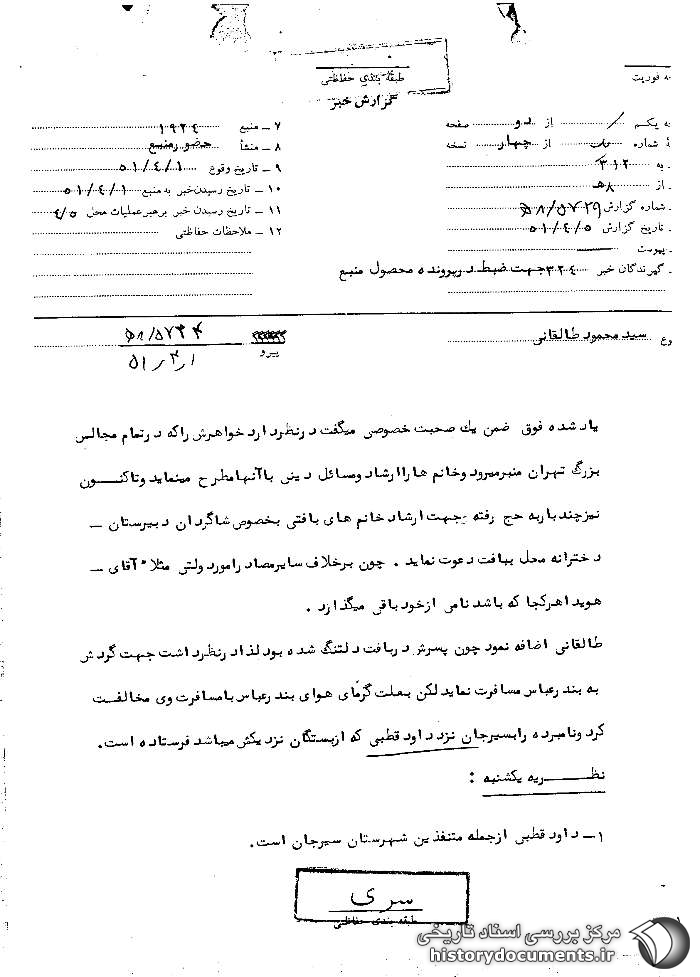 طبقه بندی حفاظتی
گزارش خبر
به فوریت
به یکم / از دو صفحه
شماره از چهار نسخه
به ۳۱۲
از ۵۸
شماره گزارش ۵۸/۵۷۲۹
تاریخ گزارش ۵۱/۴/۵
پیوست
گیرندگان خبر ۳۲۴ جهت ضبط در پرونده محصول منبع
۷ – منبع ۱۹۲۴
۸ – منشأ حضور منبع
۹ – تاریخ وقوع ۵۱/۴/۱
۱۰ – تاریخ رسیدن خبر به منبع ۵۱/۴/۱
۱۱ – تاریخ رسیدن خبر برهبر عملیات محل ۴/۵
۱۲ – ملاحظات حفاظتی
سید محمود طالقانی
پیرو
یاد شده فوق ضمن یك صحبت خصوصی میگفت در نظر دارد خواهرش راکه در تمام مجالس
بزرگ تهران منبر میرود و خانم ها را ارشاد و مسائل دینی با آنها مطرح مینماید و تاکنــون
نیز چند بار به حج رفته جهت ارشاد خانم های بافتی بخصوص شاگردان دبیرستان –
دخترانه محل ببافت دعوت نماید . چون بر خلاف سایر مصادر امور دولتی مثلا " آقای –
هویدا هر کجا که باشد نامی از خود باقی میگذارد .
طالقانی اضافه نمود چون پسرش در بافت دلتنگ شده بود لذا در نظر داشت جهت گردش
به بندرعباس مسافرت نماید لکن بعلت گرمای هوای بندرعباس با مسافرت وی مخالفــت
کرد و نامبرده را بسیرجان نزد داود قطبی که از بستگان نزدیکش میباشد فرستاده است.
نظــریه یکشنبه :
۱– داود قطبی از جمله متنفذین شهرستان سیرجان است.
سری
طبقه بندی حفاظتی
مرکز بررسی اسناد تاریخی
historydocuments.ir